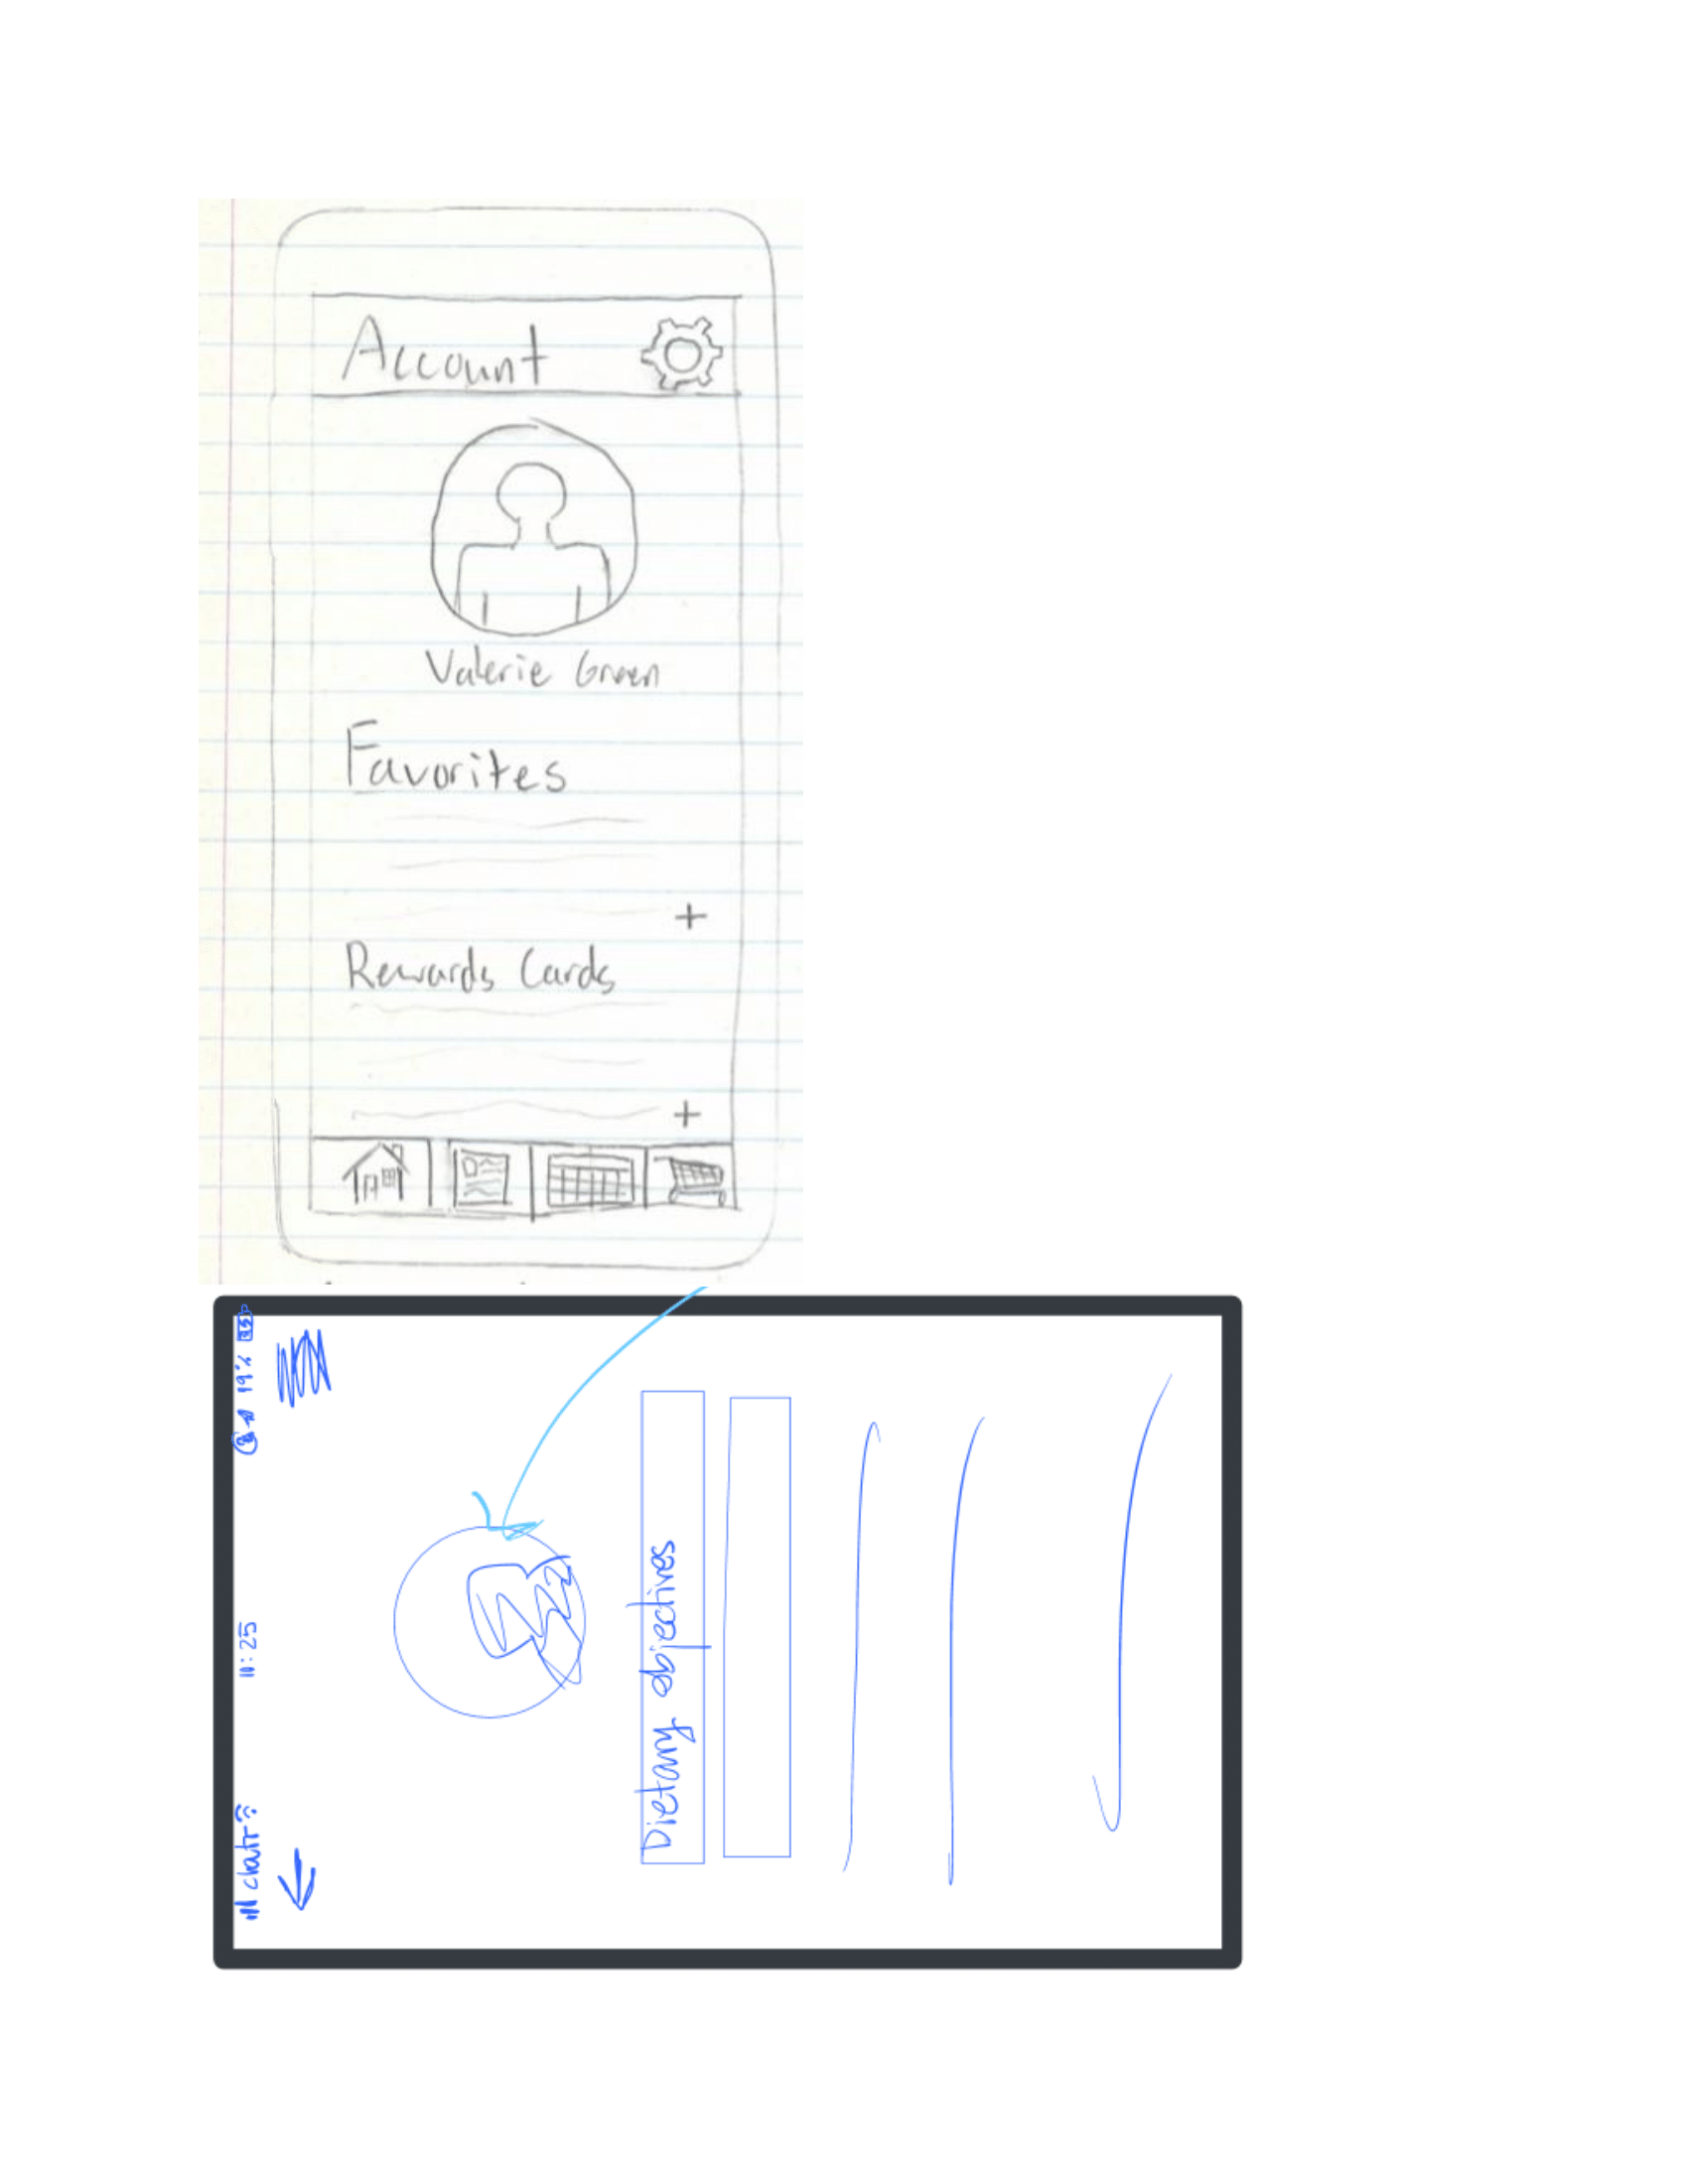 Account
Valerie Green
Favorites
+
Rewards Cards
+
chatr
11:25
19%
Dietary objectives